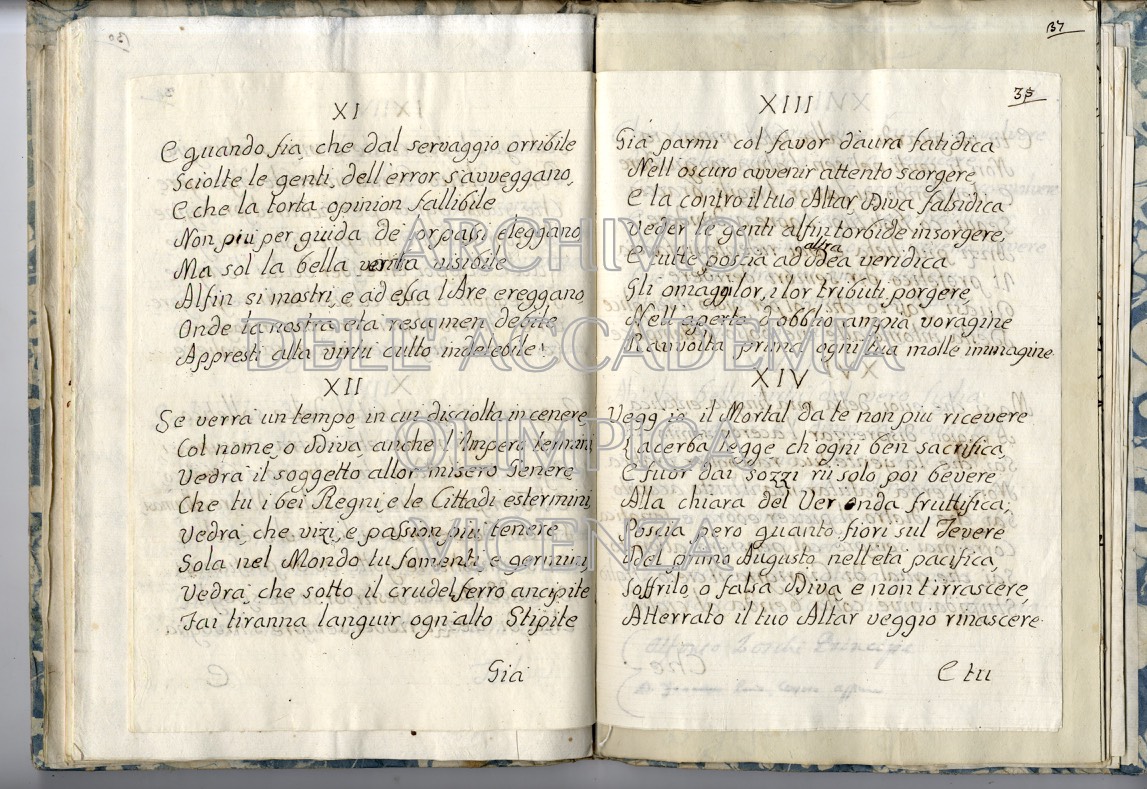 XI
E quando fia, che dal servaggio orribile
Sciolte le genti, dell'error s'avveggano,
E che la torta opinion fallibile
Non piu per guida de' lor passi eleggano
Ma sol la bella verità visibile
Alfin si mostri, e ad essa l'Are ereggano
Onde la nostra età resa men debile
Appresti alla virtù culto indelebile!
XII
Se verrà un tempo, in cui disciolta in cenere
Col nome, o Diva, anche l'Impero termini,
Vedrà il soggetto allor misero Genere
Che tu i bei Regni, e le Cittadi estermini,
Vedrà, che vizi, e passion più tenere
Sola nel Mondo tu fomenti, e germini,
Vedrà, che sotto il crudel ferro ancipite
Fai tiranna languir ogn'alto Stipite
Già
37
XIII
Già parmi col favor d'aura fatidica
Nell'oscuro avvenir attento scorgere,
E là contro il tuo Altar Diva falsidica
Veder le genti alfin torbide insorgere,
altra
E tutte poscia ad Idea veridica
Gli omaggi lor, i lor tributi porgere,
Nell'aperta d'obblio ampia voragine
Ravvolta prima ogni tua molle immagine.
XIV
Vegg'io il Mortal da te non più ricevere
L'acerba legge ch'ogni ben sacrifica,
E fuor dai sozzi rii solo poi bevere
Alla chiara del Ver onda fruttifica,
Poscia però quanto fiorì sul Tevere
Del primo Augusto nell'età pacifica,
Soffrilo, o falsa Diva, e non t'irrascere,
Atterrato il tuo Altar veggio rinascere.
E tu
ARCHIVIO
DELL'ACCADEMIA
OLIMPICA
VICENZA